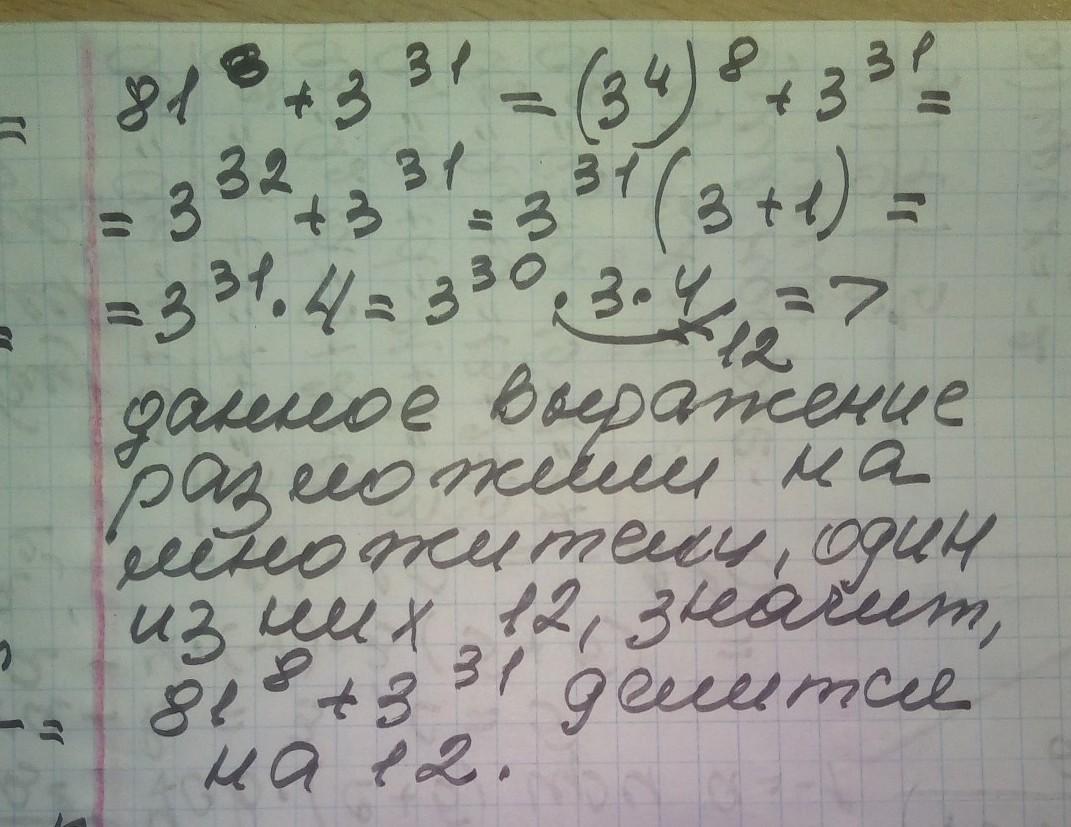 81⁸ + 3³¹ = (3⁴)⁸ + 3³¹ =
= 3³² + 3³¹ = 3³¹ (3 + 1) =
= 3³¹ · 4 = 3³⁰ · 3 · 4 = >
12
данное выражение
разложили на
множители, один
из них 12, значит,
81⁸ + 3³¹ делится
на 12.